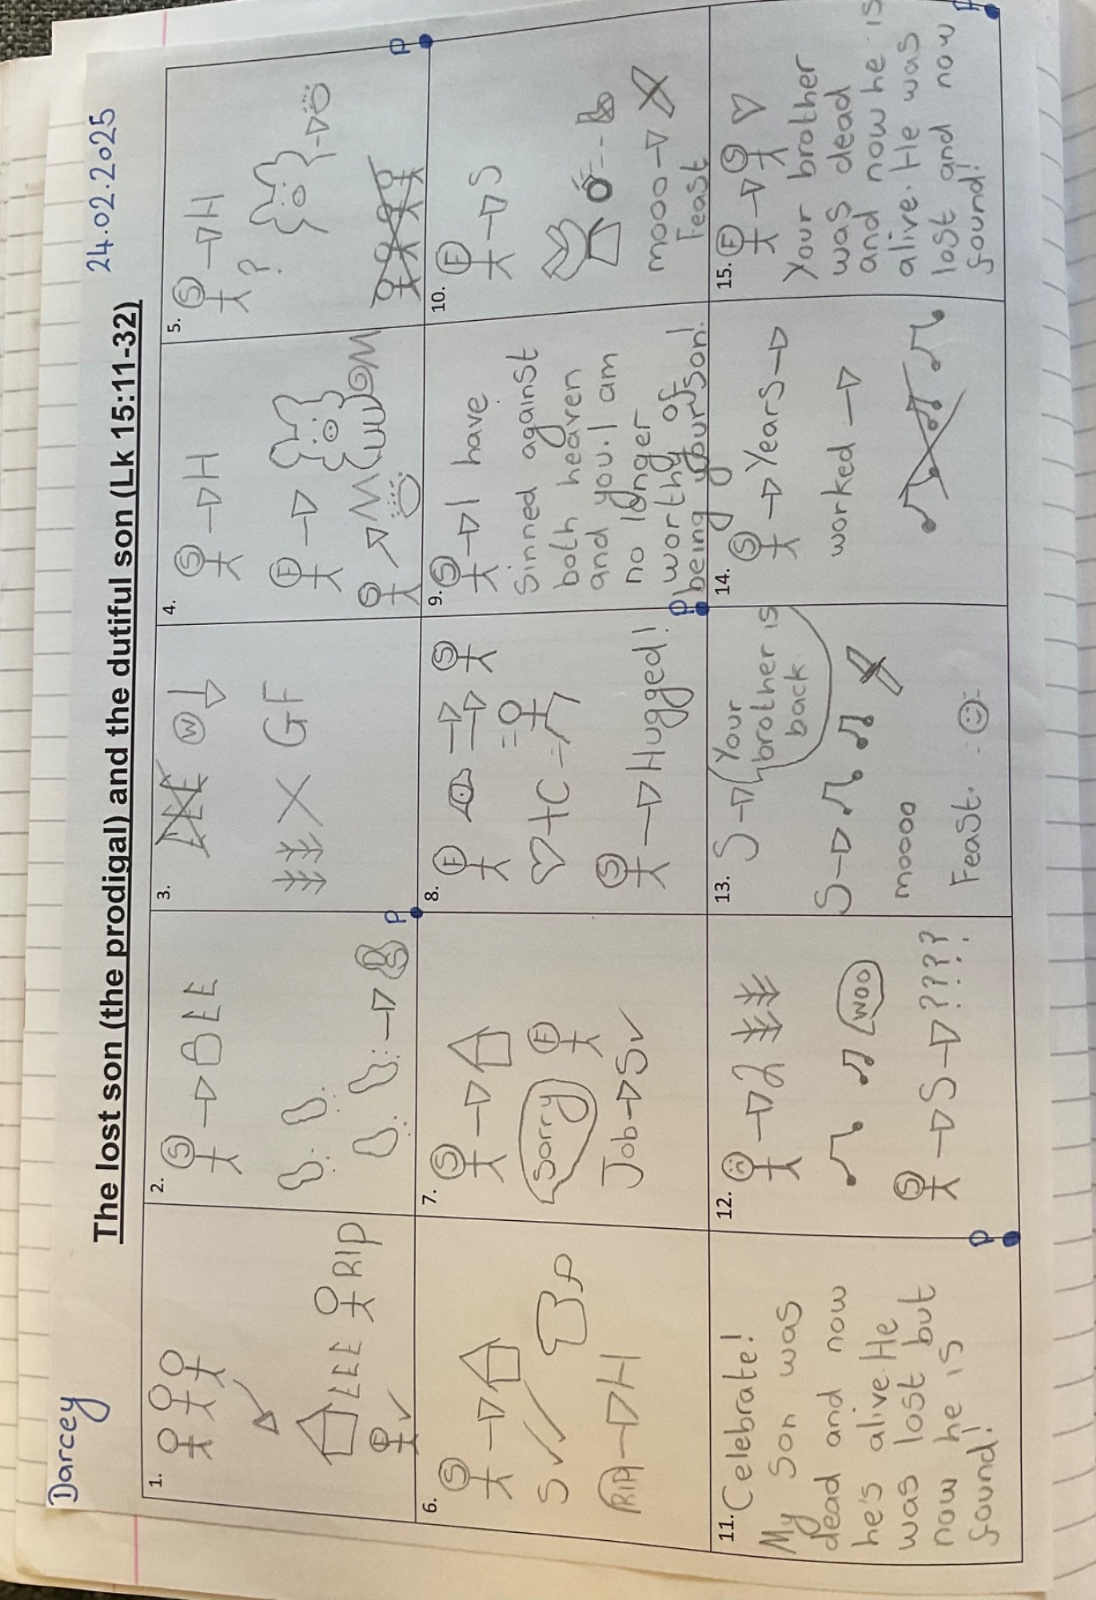 Darcey
24.02.2025
The lost son (the prodigal) and the dutiful son (Lk 15:11-32)
1.
£££ RIP
F
2.
S £ £
S
P
3.
£££ W
GF
4.
S H
F
S
5.
S H
?
P
6.
S
S
RIP H
7.
S
Sorry F
Job S
8.
F S
+ C =
S Hugged!
P
9. S I have
sinned against
both heaven
and you. I am
no longer
worthy of
being your son!
10.
F S
mooo
Feast
11. Celebrate!
My son was
dead and now
he's alive. He
was lost but
now he is
found!
P
12.
2
woo
S S ????
13. S Your
brother is
back
S
moooo
Feast.
14.
S Years
worked
15. F S
Your brother
was dead
and now he is
alive. He was
lost and now
found!
P